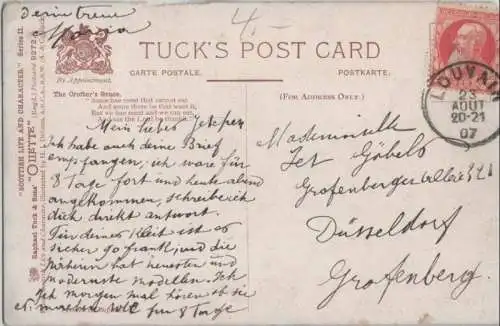 deine treue
Maria
4.-
TUCK'S POST CARD
By Appointment.
CARTE POSTALE.
POSTKARTE.
(FOR ADDRESS ONLY.)
The Crofter's Grace.
"Some hae meat that cannot eat
And some there be that want it,
But we hae meat and we can eat,
And sae the Lord be thankit."
"SCOTTISH LIFE AND CHARACTER." Series II.
Raphael Tuck & Sons' "OILETTE" [Regd.] Postcard 9272
LOUVAIN
23
AOUT
20-21
07
Mein lieber
ich habe auch deine Brief
empfangen; ich ware für
8 Tage fort und heute abend
angekommen, schreibe ich
dich direkt antwort.
Für deiner Kleit ist es
sicher so frank, und die
näherin hat neuesten und
modernste modellen. Ich
Ich morgen mal hören ob sie
es machen will für 8 Tage
Mademoiselle
Jet Göbels
Grafenbergerallee 321
Düsseldorf
Grafenberg.